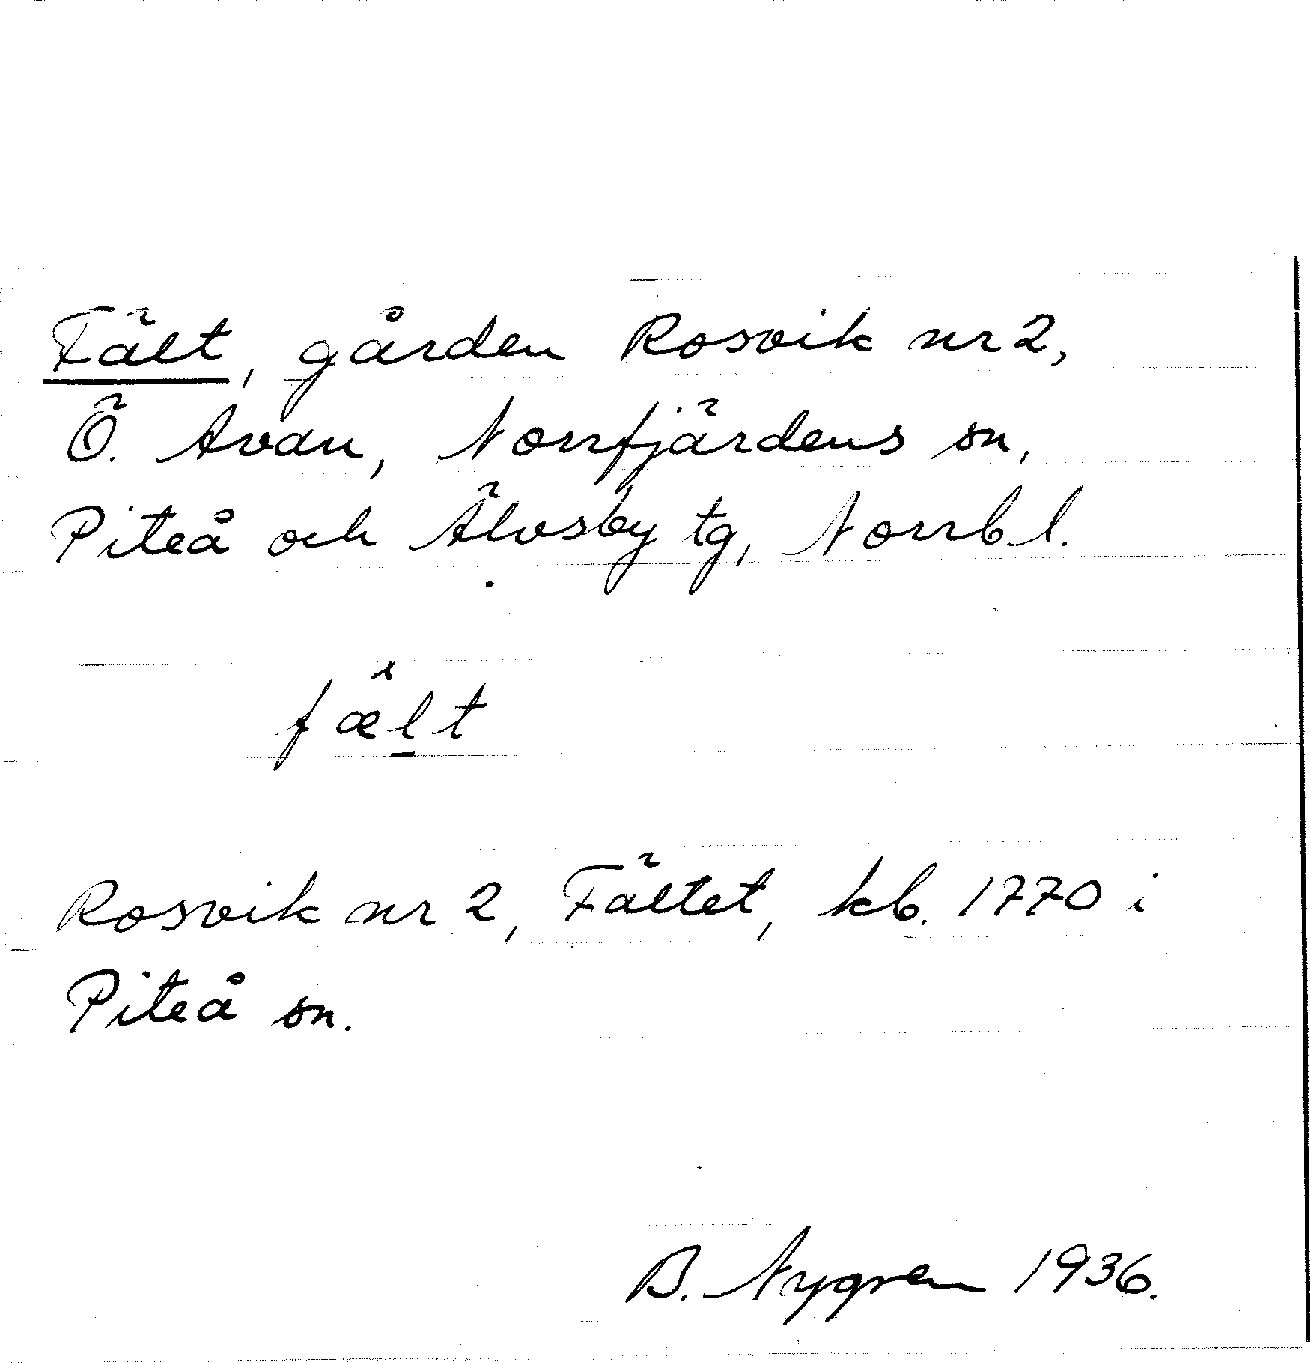 Fält, gården Rosvik nr 2,
Ö. Avan, Norrfjärdens sn,
Piteå och Älvsby tg, Norrb. l.
fæ̀l̠t
Rosvik nr 2, Fältet, kb. 1770 i
Piteå sn.
B. Nygren 1936.